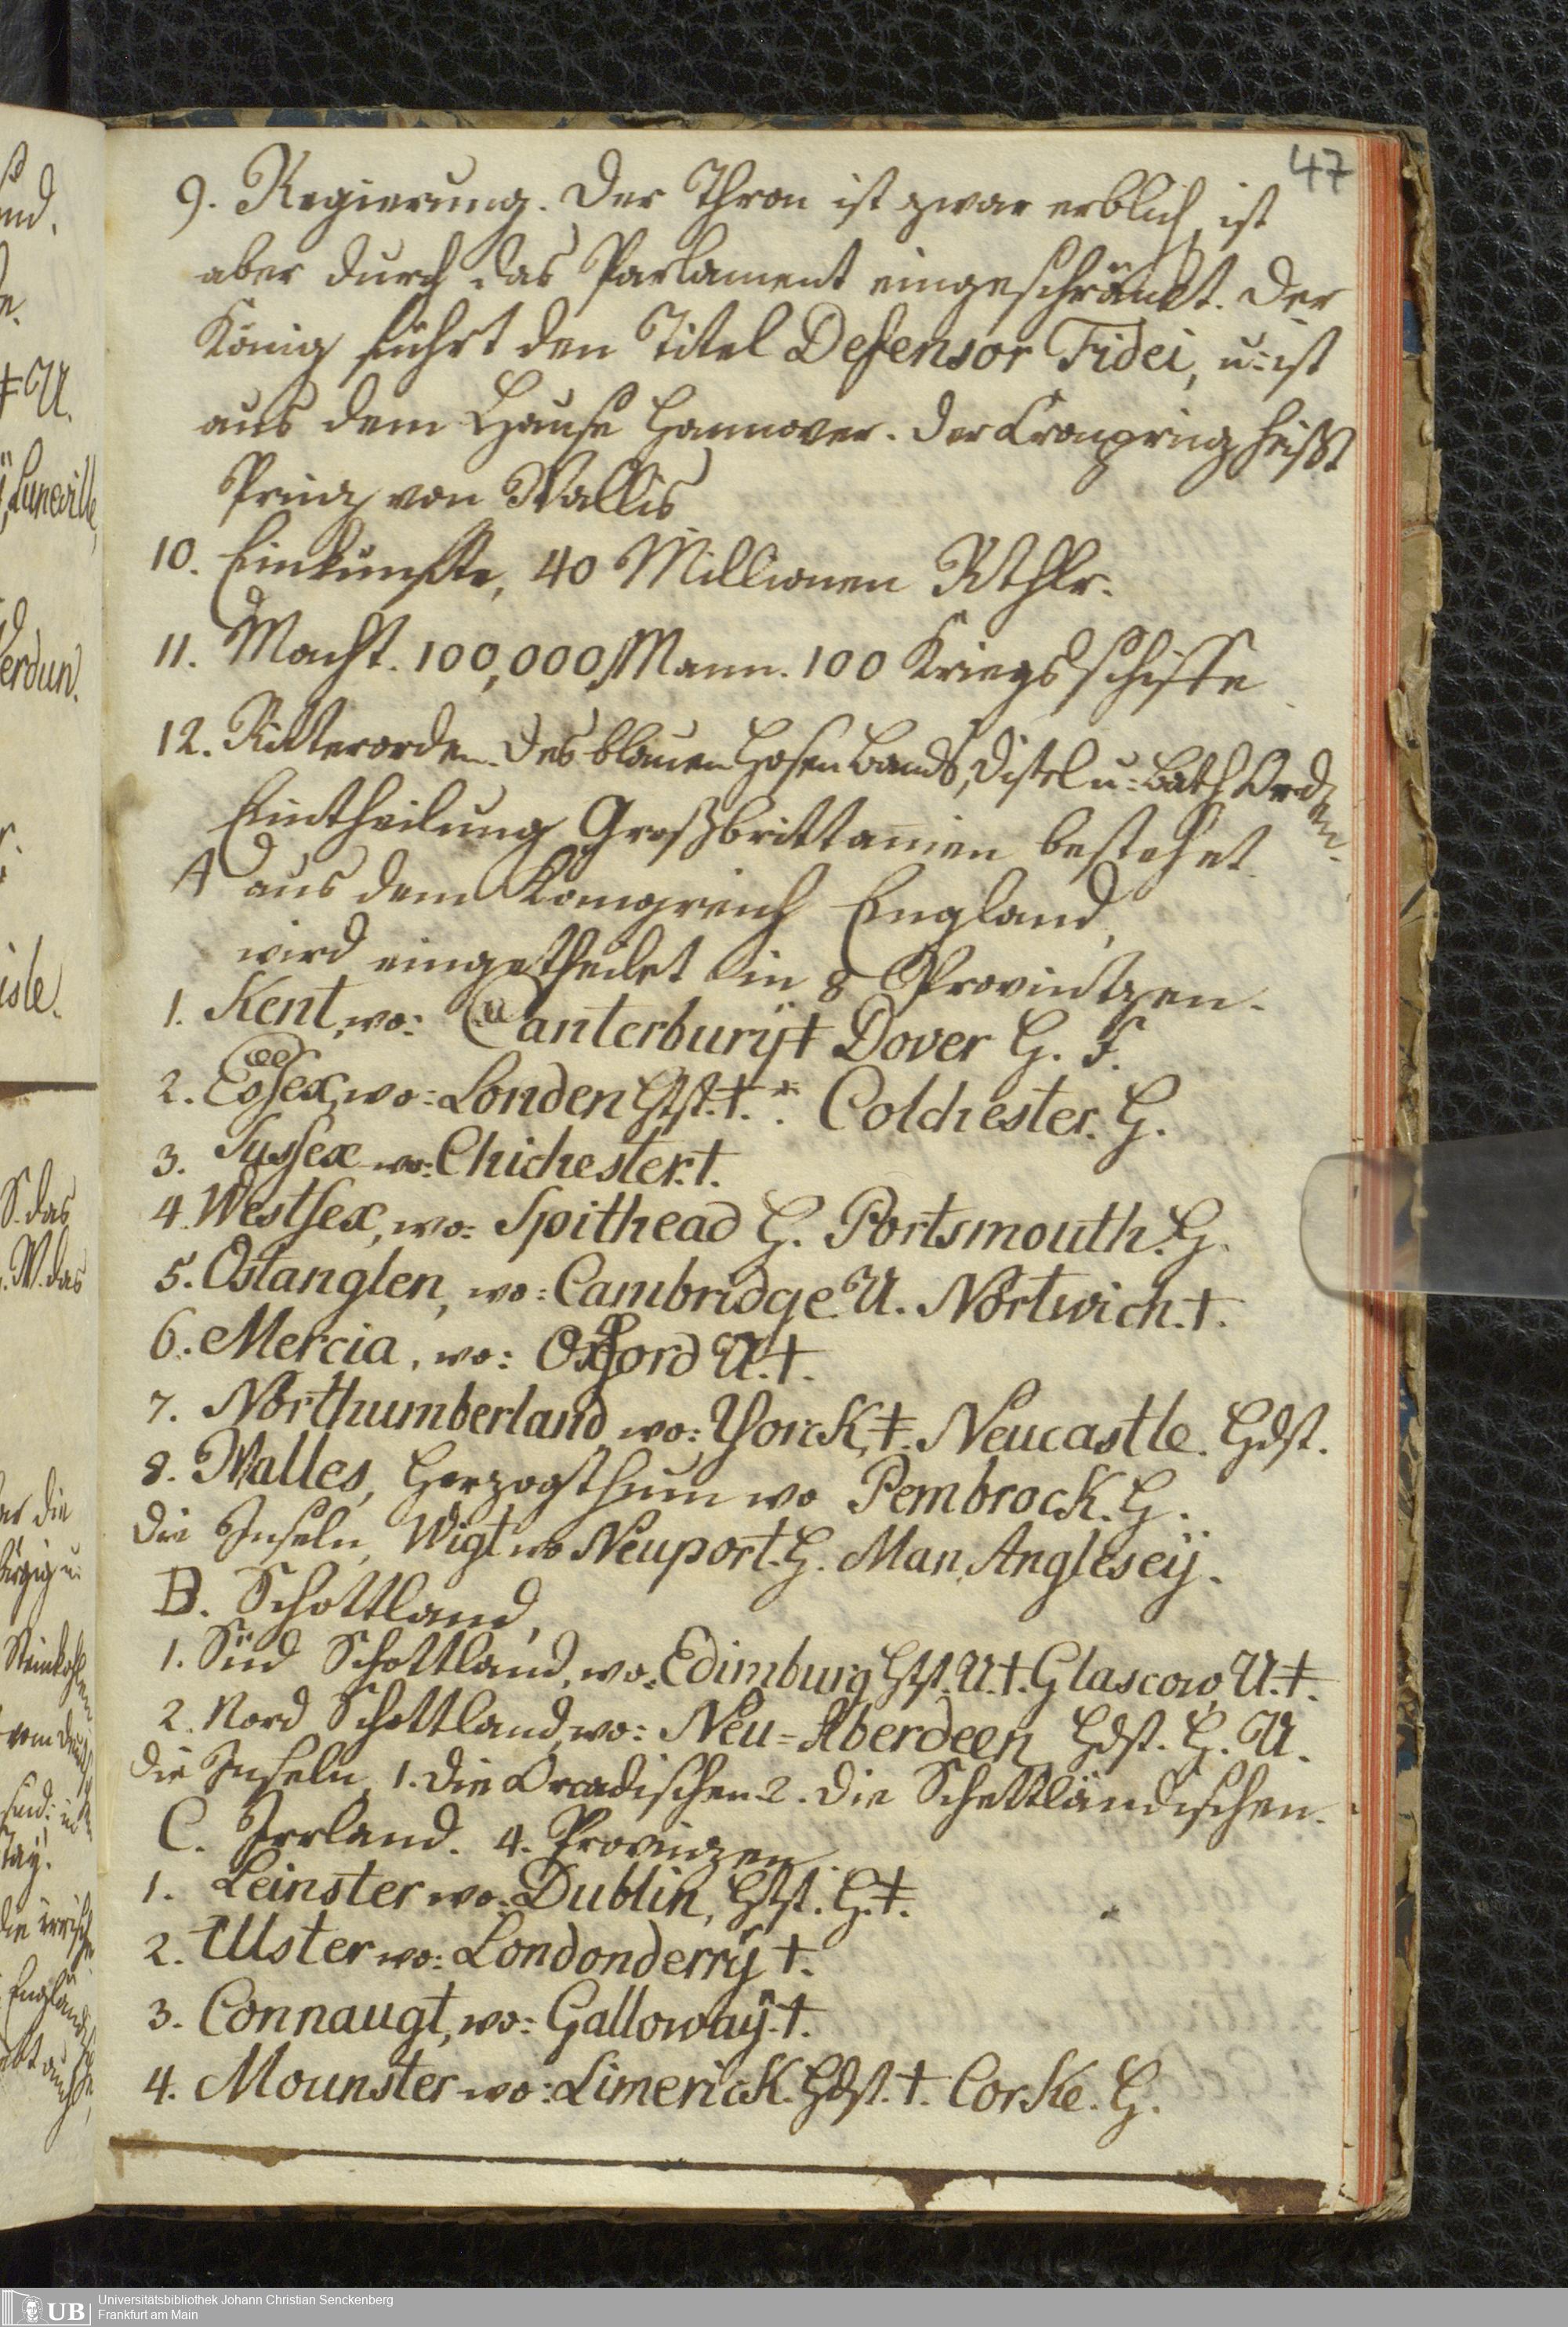 47
9. Regierung. Der Thron ist zwar erblich, ist
aber durch das Parlament eingeschränckt. Der
König führt den Titel Defensor Fidei, u: ist
aus dem Hause Hannover. Der Cronprinz heißt
Prinz von Wallis
10. Einkünffte, 40 Millionen Rthlr.
11. Macht. 100,000, Mann. 100 Kriegsschiffe
12. Ritterorden. Des blauen Hosenbands, Distel u: Bath Orden.
Eintheilung Großbrittanien bestehet
A aus dem Königreich England,
wird eingetheilet in 8 Provintzen.
1. Kent, wo: Canterburÿ‡ Dover H. F.
2. Essex, wo: Londen Htst. †. * Colchester. H.
3. Sussex wo: Chichester. †.
4. Westsex, wo: Spithead H. Portsmouth. H.
5. Ostanglen, wo: Cambridge. U. Nortwich. †.
6. Mercia, wo: Oxford U. †.
7. Northumberland wo: Yorck, ‡. Neucastle. Hdst.
8. Walles, Herzogthum wo Pembrock. H.
Die Inseln, Wigt wo Neuport. H. Man, Angleseÿ.
B. Schottland,
1. Süd Schottland, wo: Edimburg Htst. U. †. Glascow, U. ‡.
2. Nord Schottland, wo: Neu=Aberdeen Hdst. H. U.
Die Inseln, 1. Die Orcadischen 2. Die Schettländischen.
C. Irrland. 4. Provinzen
1. Leinster wo: Dublin, Htst. H. ‡.
2. Ulster wo: Londonderrÿ †.
3. Connaugt, wo: Gallowaÿ. †.
4. Mounster wo: Limerick. Hdst. †. Corke. H.
Universitätsbibliothek Johann Christian Senckenberg
UB Frankfurt am Main